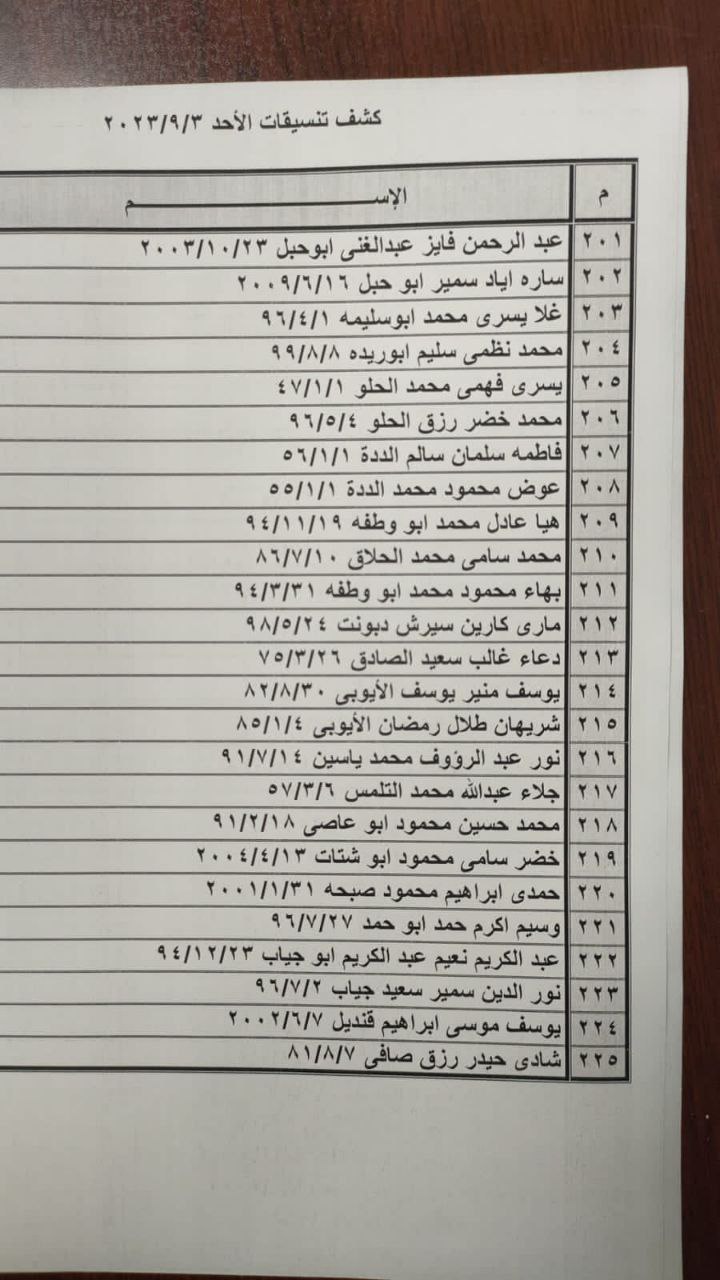 كشف تنسيقات الأحد ٢٠٢٣/٩/٣
م الإســـــــــم
٢٠١ عبد الرحمن فايز عبدالغنى ابوحبل ٢٠٠٣/١٠/٢٣
٢٠٢ ساره اياد سمير ابو حبل ٢٠٠٩/٦/١٦
٢٠٣ غلا يسرى محمد ابوسليمه ٩٦/٤/١
٢٠٤ محمد نظمى سليم ابوريده ٩٩/٨/٨
٢٠٥ يسرى فهمى محمد الحلو ٤٧/١/١
٢٠٦ محمد خضر رزق الحلو ٩٦/٥/٤
٢٠٧ فاطمه سلمان سالم الددة ٥٦/١/١
٢٠٨ عوض محمود محمد الددة ٥٥/١/١
٢٠٩ هيا عادل محمد ابو وطفه ٩٤/١١/١٩
٢١٠ محمد سامى محمد الحلاق ٨٦/٧/١٠
٢١١ بهاء محمود محمد ابو وطفه ٩٤/٣/٣١
٢١٢ مارى كارين سيرش دبونت ٩٨/٥/٢٤
٢١٣ دعاء غالب سعيد الصادق ٧٥/٣/٢٦
٢١٤ يوسف منير يوسف الأيوبى ٨٢/٨/٣٠
٢١٥ شريهان طلال رمضان الأيوبى ٨٥/١/٤
٢١٦ نور عبد الرؤوف محمد ياسين ٩١/٧/١٤
٢١٧ جلاء عبدالله محمد التلمس ٥٧/٣/٦
٢١٨ محمد حسين محمود ابو عاصى ٩١/٢/١٨
٢١٩ خضر سامى محمود ابو شتات ٢٠٠٤/٤/١٣
٢٢٠ حمدى ابراهيم محمود صبحه ٢٠٠١/١/٣١
٢٢١ وسيم اكرم حمد ابو حمد ٩٦/٧/٢٧
٢٢٢ عبد الكريم نعيم عبد الكريم ابو جياب ٩٤/١٢/٢٣
٢٢٣ نور الدين سمير سعيد جياب ٩٦/٧/٢
٢٢٤ يوسف موسى ابراهيم قنديل ٢٠٠٢/٦/٧
٢٢٥ شادى حيدر رزق صافى ٨١/٨/٧